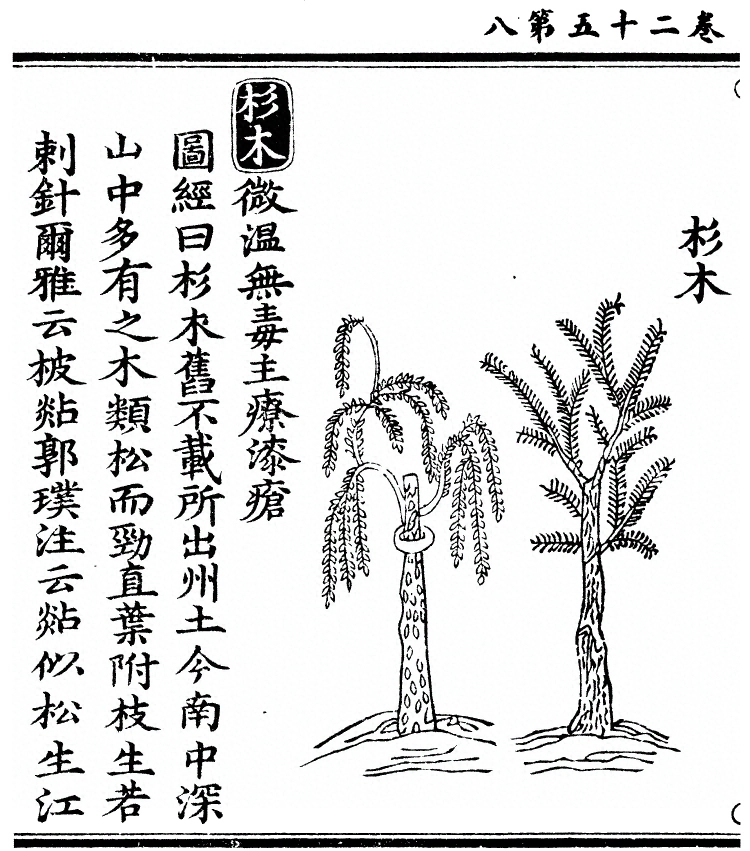 卷二十五第八
杉木
杉木微温無毒主療漆瘡
圖經曰杉木舊不載所出州土今南中深
山中多有之木類松而勁直葉附枝生若
刺針爾雅云柀煔郭璞注云煔似松生江